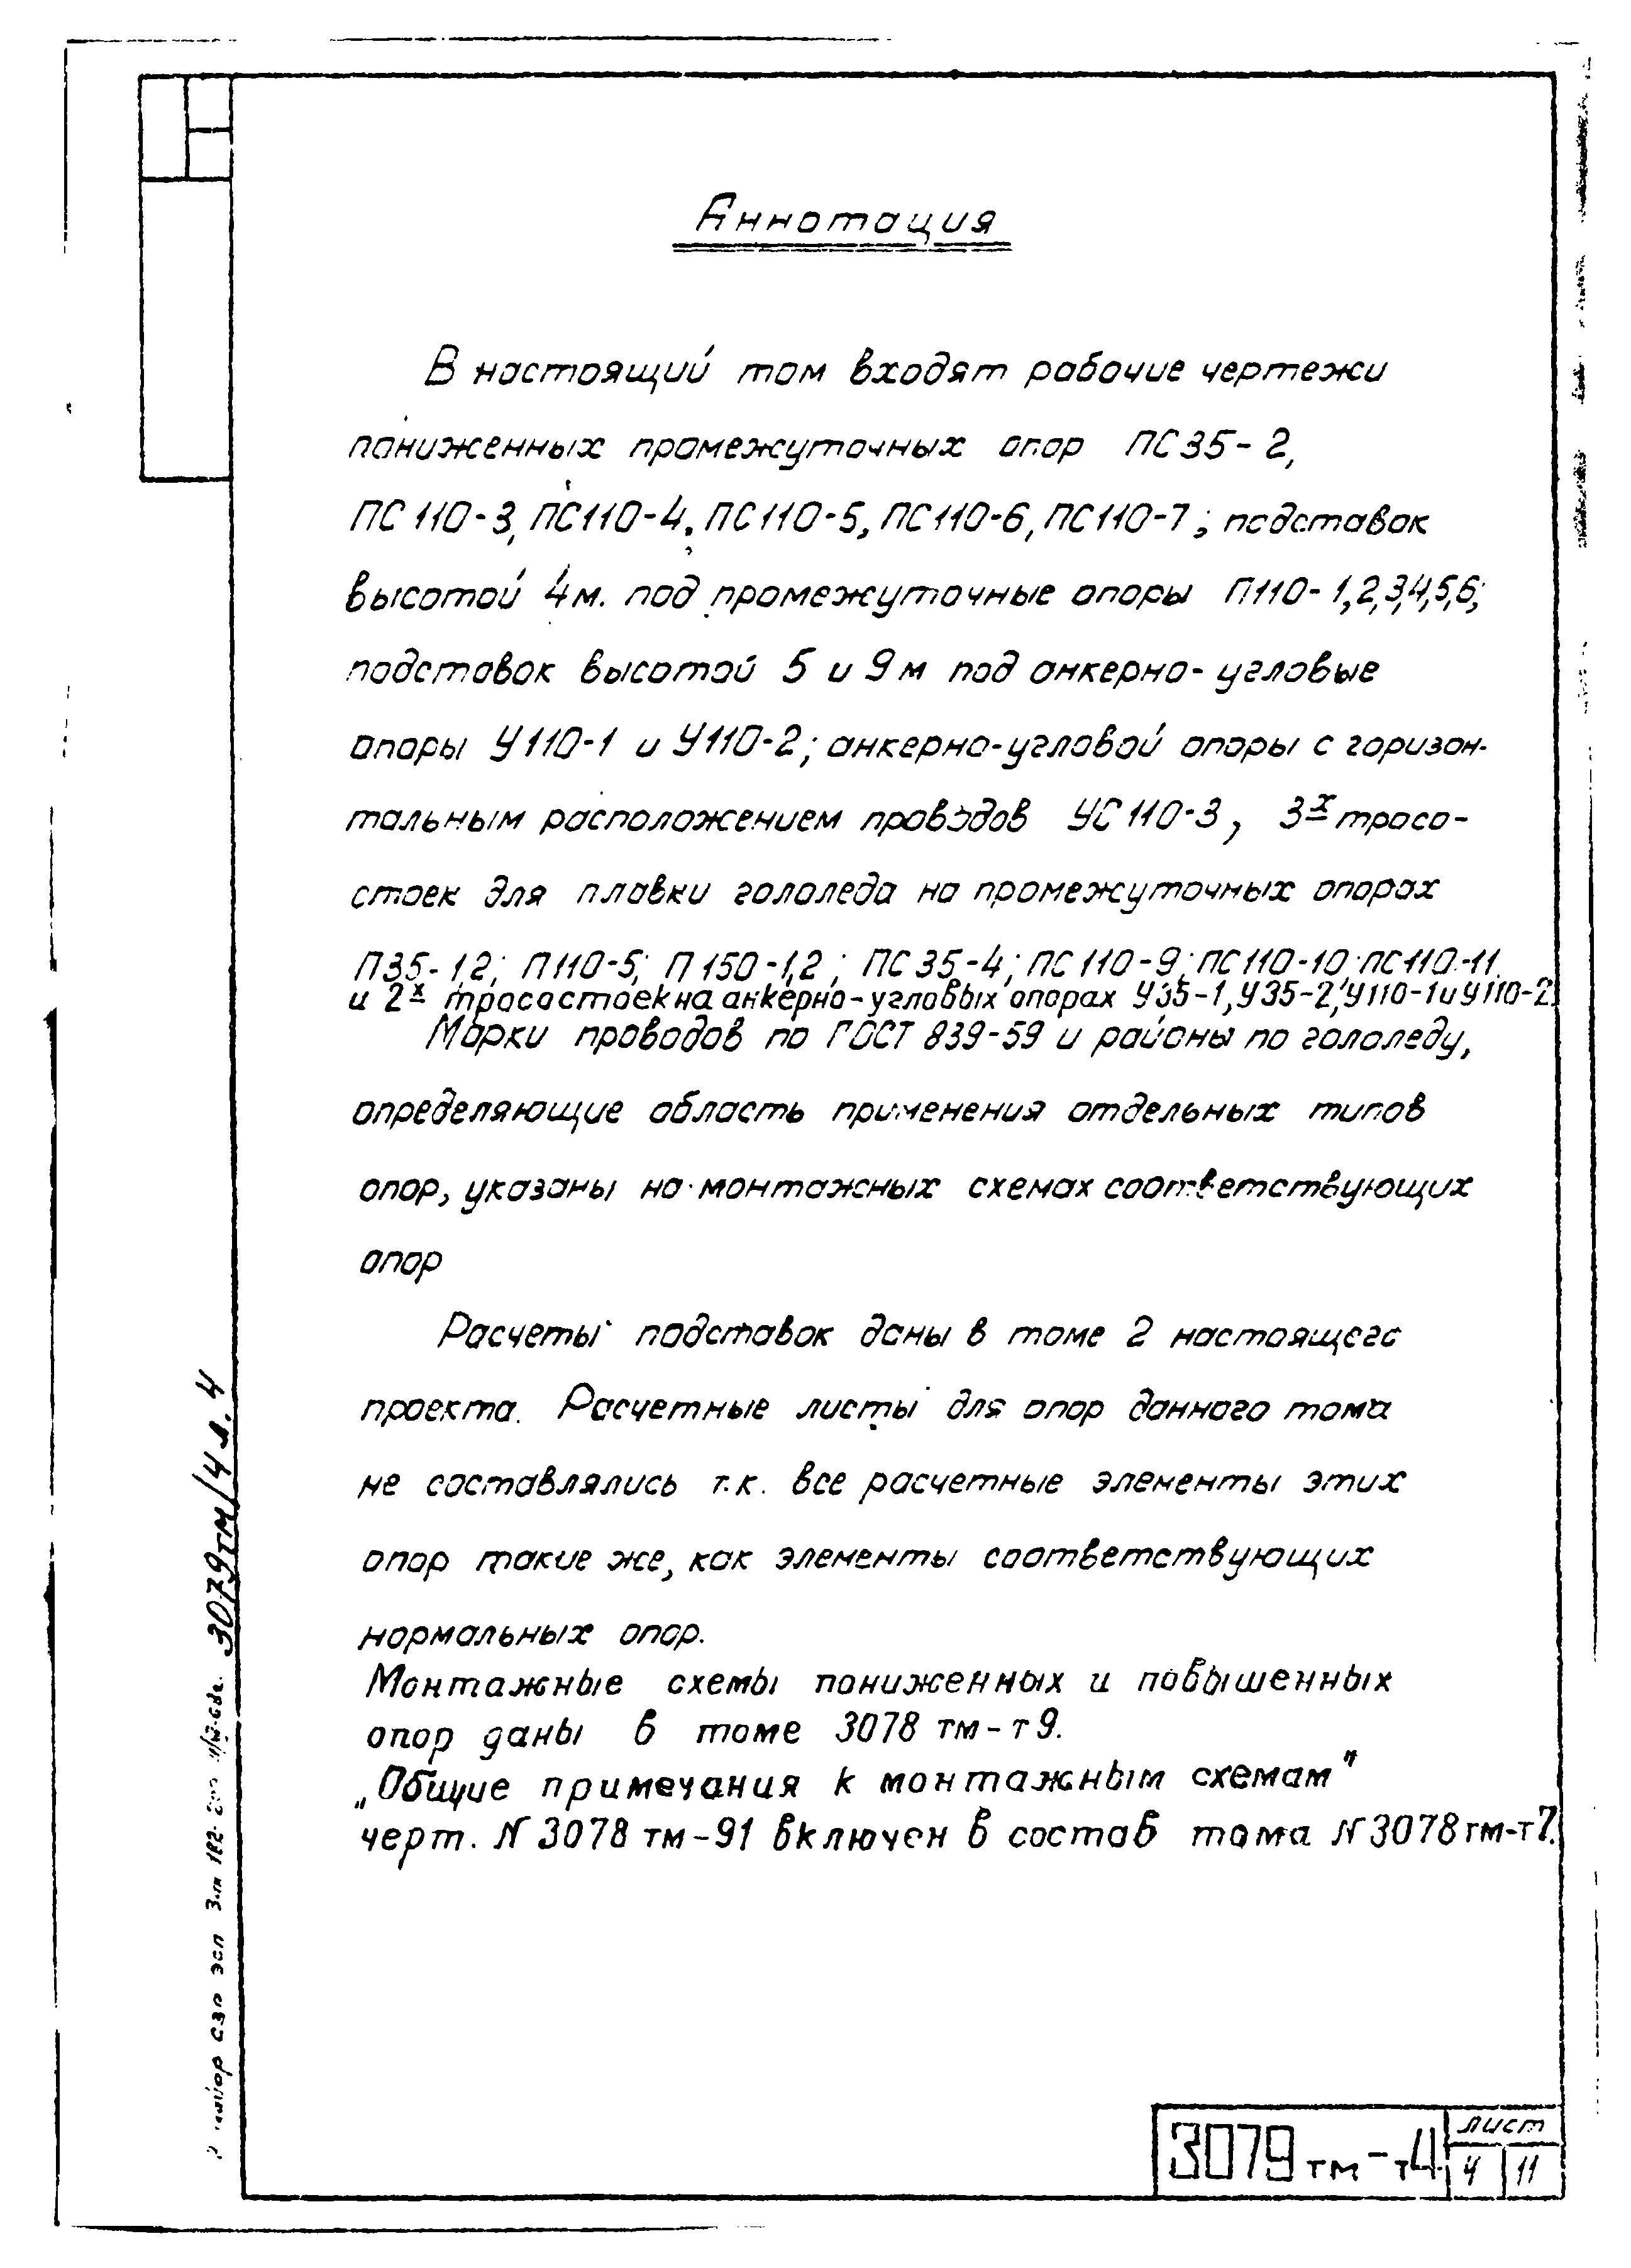 Аннотация
В настоящий том входят рабочие чертежи
пониженных промежуточных опор ПС35-2,
ПС110-3, ПС110-4, ПС110-5, ПС110-6, ПС110-7; подставок
высотой 4м. под промежуточные опоры П110-1,2,3,4,5,6;
подставок высотой 5 и 9м под анкерно-угловые
опоры У110-1 и У110-2; анкерно-угловой опоры с горизон-
тальным расположением проводов УС110-3, 3х тросо-
стоек для плавки гололеда на промежуточных опорах
П35-1,2; П110-5; П150-1,2; ПС35-4; ПС110-9; ПС110-10; ПС110-11
и 2х тросостоек на анкерно-угловых опорах У35-1, У35-2, У110-1 и У110-2.
Марки проводов по ГОСТ 839-59 и районы по гололеду,
определяющие область применения отдельных типов
опор, указаны на монтажных схемах соответствующих
опор
Расчеты подставок даны в томе 2 настоящего
проекта. Расчетные листы для опор данного тома
не составлялись т.к. все расчетные элементы этих
опор такие же, как элементы соответствующих
нормальных опор.
Монтажные схемы пониженных и повышенных
опор даны в томе 3078 тм-т9.
„Общие примечания к монтажным схемам"
черт. N 3078 тм-91 включен в состав тома N 3078 тм-т7.
3079тм/4 л. 4
СЗО ЭСП
3079 тм-т4
лист
4 11